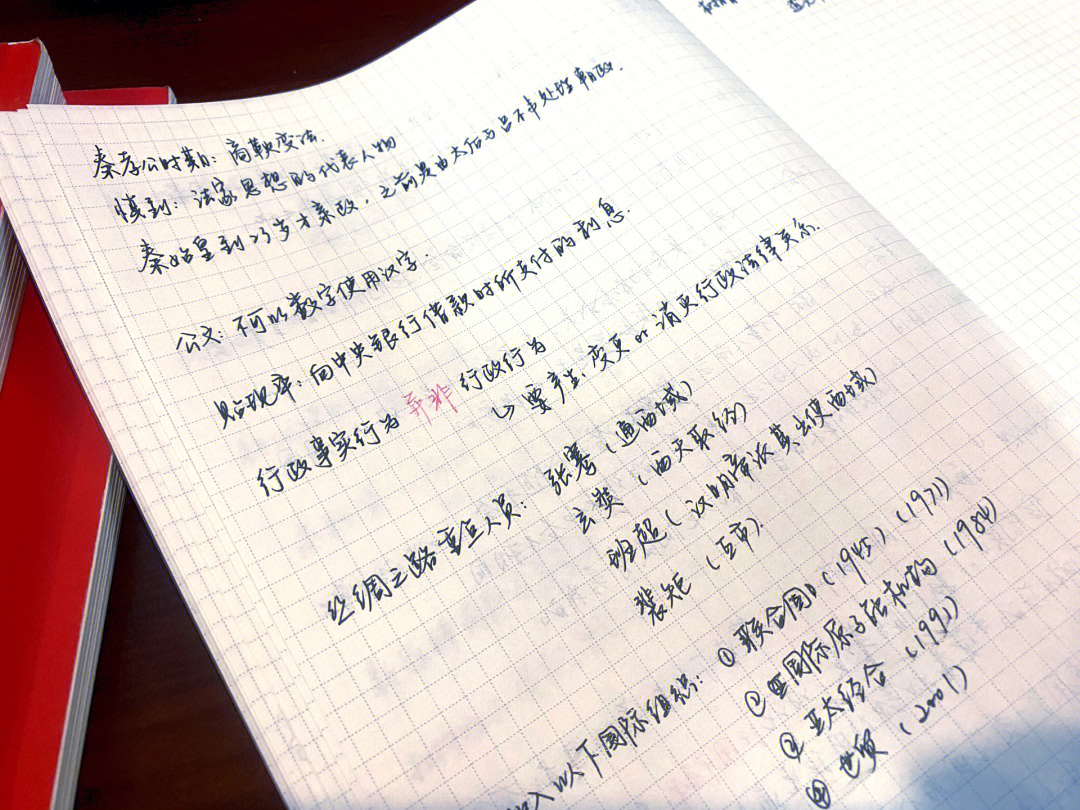 秦孝公时期：商鞅变法.
慎到：法家思想的代表人物
秦始皇到23岁才亲政，之前是由太后与吕不韦处理朝政.
公文：不可以数字使用汉字.
贴现率：向中央银行借款时所支付的利息.
行政事实行为 并非 行政行为
↳ 要产生、变更 or 消灭行政法律关系.
丝绸之路重点人员：张骞（通西域）
玄奘（西天取经）
班超（汉明帝派其出使西域）
裴矩（互市）.
加入以下国际组织：① 联合国（1945）（1971）
② 国际原子能机构（1984）
③ 亚太经合（1991）
④ 世贸（2001）